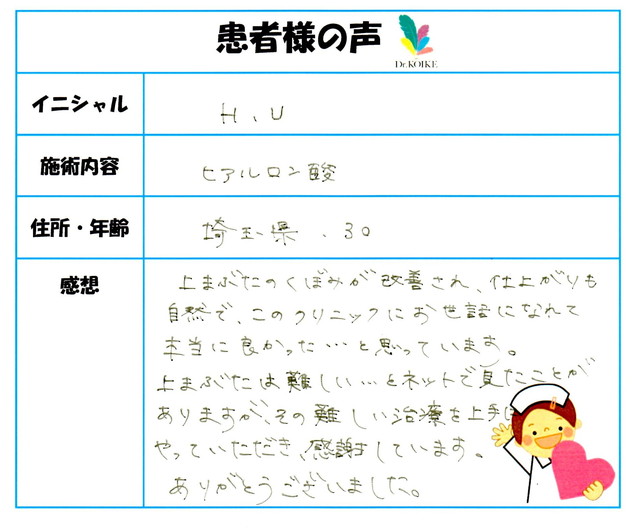 患者様の声
Dr.KOIKE
イニシャル
H、U
施術内容
ヒアルロン酸
住所・年齢
埼玉県、30
感想
上まぶたのくぼみが改善され、仕上がりも
自然で、このクリニックにお世話になれて
本当に良かった…と思っています。
上まぶたは難しい…とネットで見たことが
ありますが、その難しい治療を上手に
やっていただき、感謝しています。
ありがとうございました。